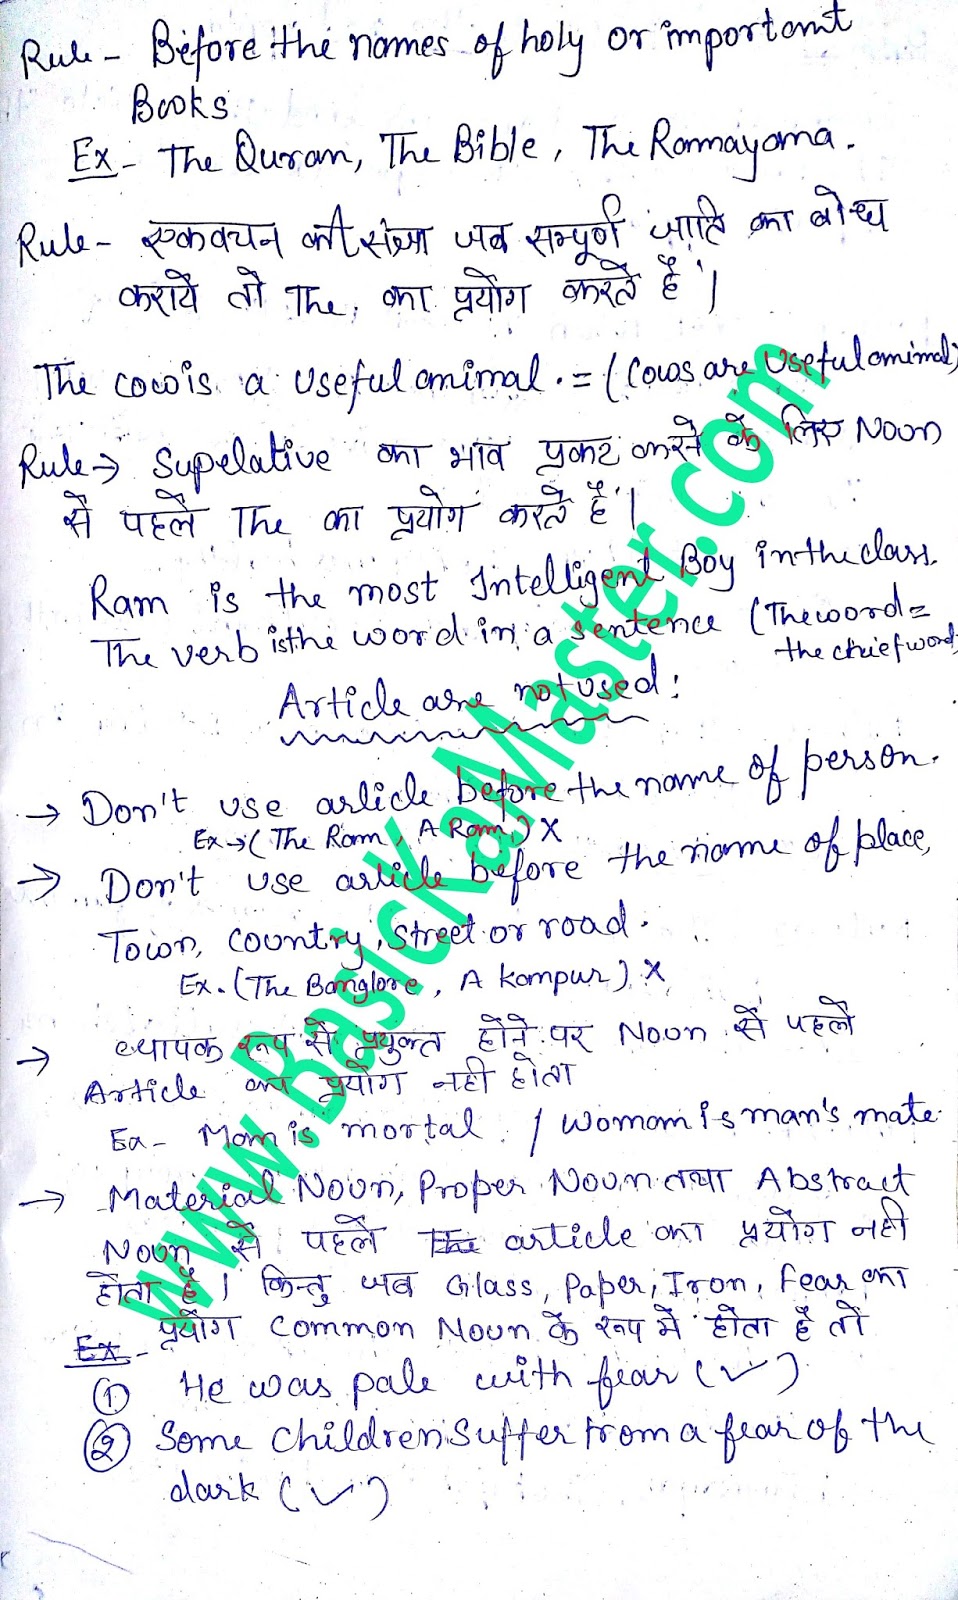 Rule - Before the names of holy or important
Books
Ex - The Quran, The Bible, The Ramayana.
Rule - एकवचन की संज्ञा जब सम्पूर्ण जाति का बोध
कराये तो The, का प्रयोग करते हैं।
The cow is a useful animal. = (Cows are useful animal)
Rule → Supelative का भाव प्रकट करने के लिए Noun
से पहले The का प्रयोग करते हैं।
Ram is the most Intelligent Boy in the class.
The verb is the word in a sentence (The word =
the chief word)
Article are not used:
→ Don't use article before the name of person.
Ex → (The Ram, A Ram) X
→ Don't use article before the name of place,
Town, country, street or road.
Ex. (The Banglore, A kanpur) X
→ व्यापक रूप से प्रयुक्त होने पर Noun से पहले
Article का प्रयोग नही होता
Ex - Man is mortal. / Woman is man's mate
→ Material Noun, Proper Noun तथा Abstract
Noun से पहले The article का प्रयोग नही
होता है। किन्तु जब Glass, Paper, Iron, fear का
प्रयोग Common Noun के रूप में होता है तो
Ex -
① He was pale with fear (✓)
② Some children suffer from a fear of the
dark (✓)
www.BasicKaMaster.com